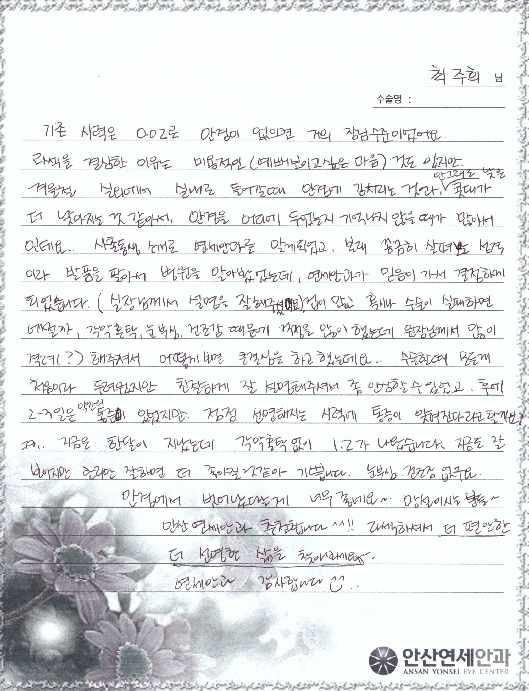 최주희 님
수술명 :
기존 시력은 0.02로 안경이 없으면 거의 장님수준이었어요.
라섹을 결심한 이유는 미용적인 (예뻐보이고 싶은 마음) 것도 있지만
겨울철 실외에서 실내로 들어갈때 안경에 김서리는 것과, 안그래도 낮은 콧대가
더 낮아지는 것 같아서, 안경을 어디에 두었는지 기억나지 않을 때가 많아서
인데요.. 사촌동생 소개로 연세안과를 알게되었고, 본래 꼼꼼히 살펴보는 성격
이라 발품을 팔아서 병원을 알아봤었는데, 연세안과가 믿음이 가서 결정하게
되었습니다. (실장님께서 설명을 잘해주셨어요) 겁이 많고 혹시나 수술이 실패하면
어쩔까, 각막혼탁, 눈부심, 건조감 때문에 걱정을 많이 했는데 원장님께서 많이
격려(?) 해주셔서 어떻게보면 큰결심을 하고 했는데요.. 수술할때 모든게
처음이라 두려웠지만 친절하게 잘 설명해주셔서 좀 안심할 수 있었고, 후에
2-3일은 약간의 통증이 있었지만 점점 선명해지는 시력에 통증이 잊혀진다라고 할까요?
ㅋㅋ.. 지금은 한달이 지났는데 각막혼탁 없이 1.2가 나왔습니다. 지금도 잘
보이지만 관리만 잘하면 더 좋아질것같아 기쁩니다. 눈부심, 건조감 없구요.
안경에서 벗어났다는게 너무 좋네요~ 망설이시는 분들~
안산 연세안과 추천합니다 ^^!! 라섹하셔서 더 편안한
더 선명한 삶을 찾아가세요~.
연세안과 감사합니다 ..
안산연세안과
ANSAN YONSEI EYE CENTER